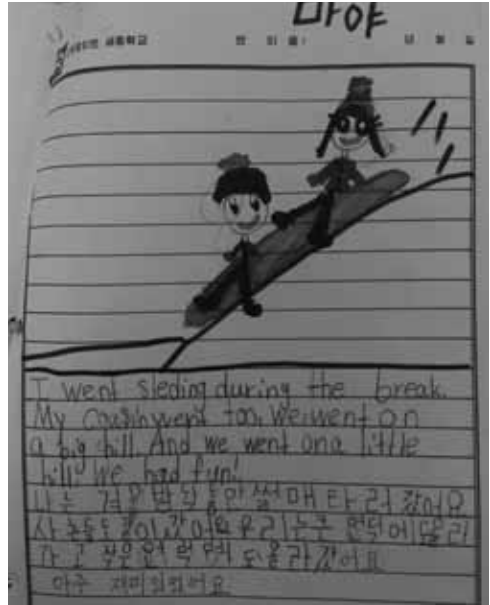 마야
세종학교
반 이름:
년 월 일
I went sleding during the break.
My cousin went too. We went on
a big hill. And we went on a little
hill. We had fun!
나는 겨울 동안 썰매 타러 갔어요
사촌들도 같이 갔어요 우리는 큰 언덕에 올라
가고 작은 언덕 도 올라갔어요
아주 재미있었어요